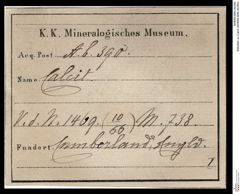 K. K. Mineralogisches Museum.
Acq. Post A. b. 390.
Name: Calcit.
V. d. N. 1409. (10/66) M. 738.
Fundort: Cumberland, Engld.